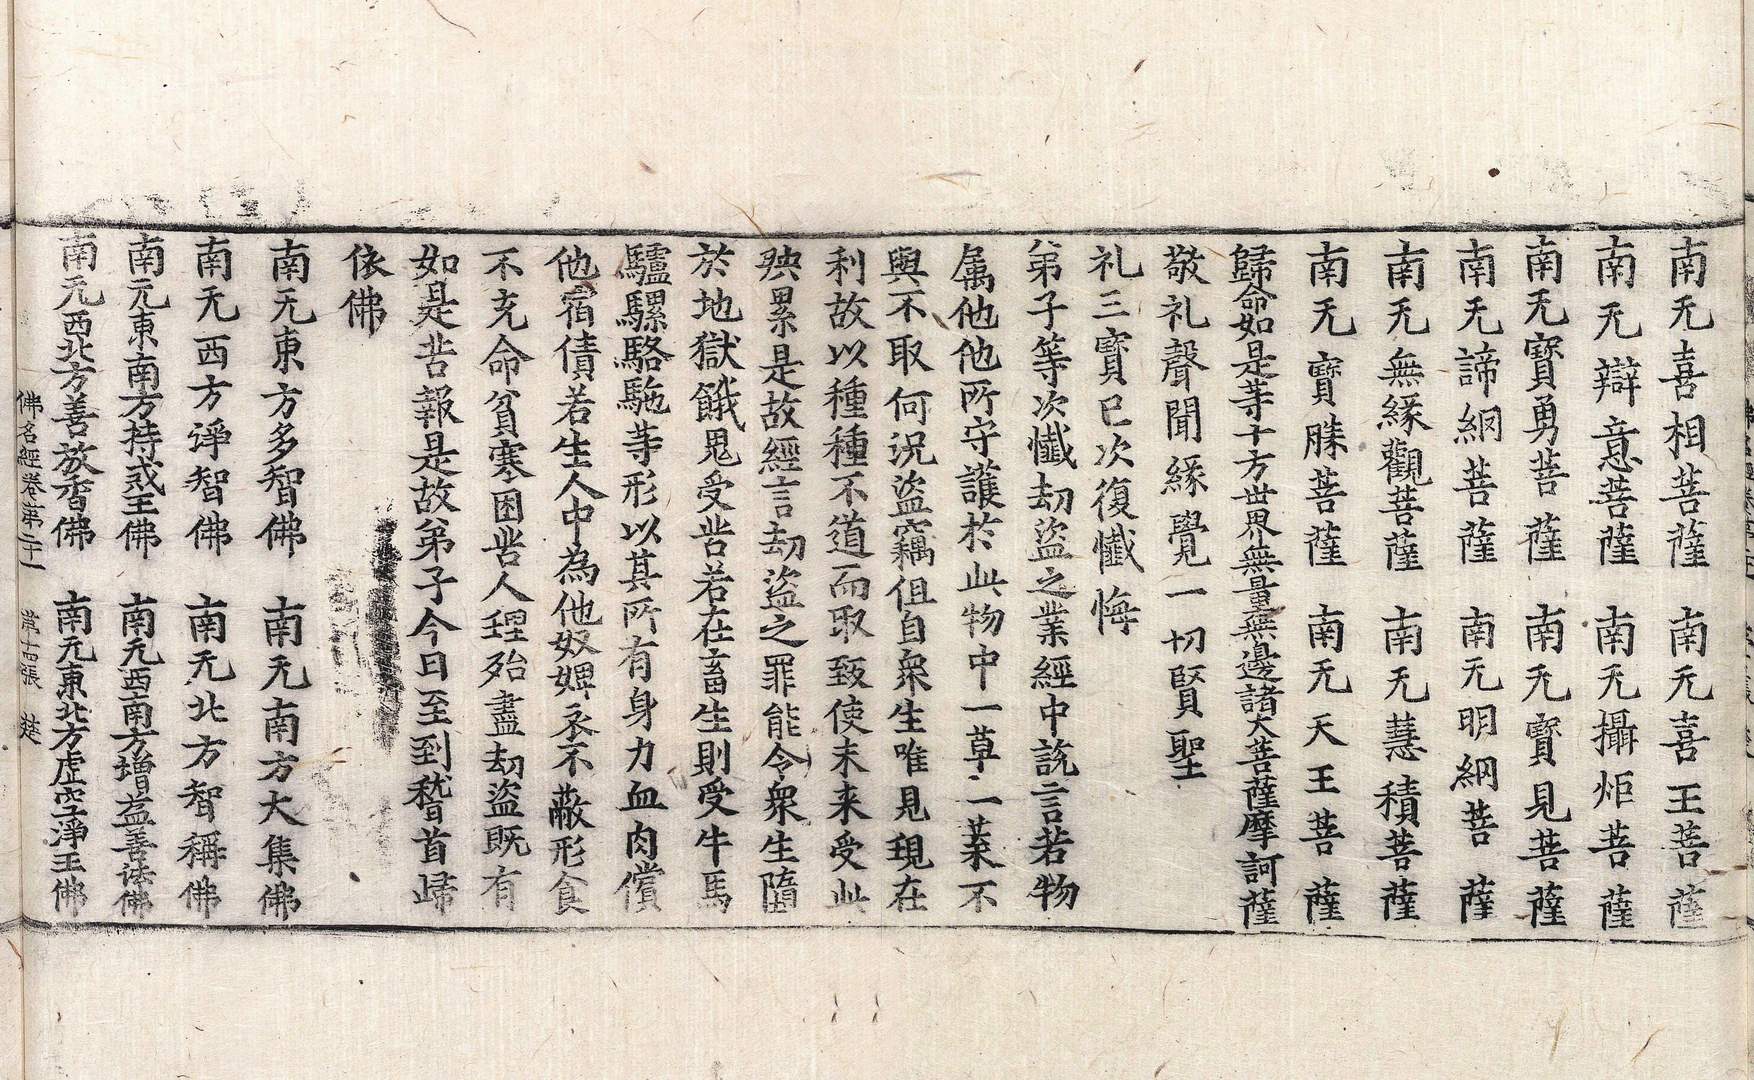 南无喜相菩薩　南无喜王菩薩
南无辯意菩薩　南无攝炬菩薩
南无寶勇菩薩　南无寶見菩薩
南无諦綱菩薩　南无明綱菩薩
南无無緣觀菩薩　南无慧積菩薩
南无寶勝菩薩　南无天王菩薩
歸命如是等十方世界無量無邊諸大菩薩摩訶薩
敬礼聲聞緣覺一切賢聖
礼三寶已次復懺悔
弟子等次懺劫盜之業經中說言若物
属他他所守護於此物中一草一葉不
與不取何況盜竊但自衆生唯見現在
利故以種種不道而取致使未来受此
殃累是故經言劫盜之罪能令衆生墮
於地獄餓鬼受苦若在畜生則受牛馬
驢騾駱駞等形以其所有身力血肉償
他宿債若生人中為他奴婢衣不蔽形食
不充命貧寒困苦人理殆盡劫盜既有
如是苦報是故弟子今日至到稽首歸
依佛
南无東方多智佛　南无南方大集佛
南无西方淨智佛　南无北方智稱佛
南无東南方持戒王佛　南无西南方增益善法佛
南无西北方善放香佛　南无東北方虛空淨王佛
佛名經卷第二十一　第十五張　楚